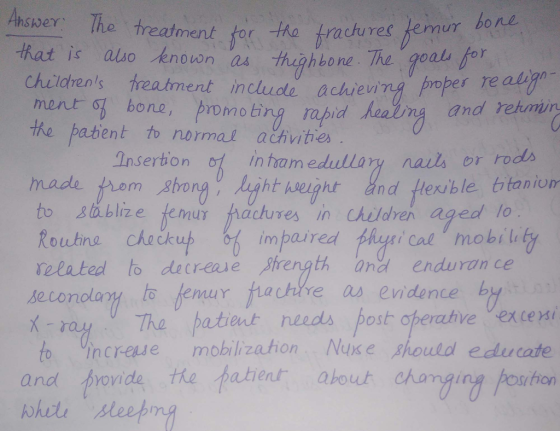 Answer: The treatment for the fractures femur bone
that is also known as thighbone. The goals for
children's treatment include achieving proper realign-
ment of bone, promoting rapid healing and returning
the patient to normal activities.
Insertion of intramedullary nails or rods
made from strong, light weight and flexible titanium
to stablize femur fractures in children aged 10.
Routine checkup of impaired physical mobility
related to decrease strength and endurance
secondary to femur fracture as evidence by
X-ray The patient needs post operative excersi
to increase mobilization Nurse should educate
and provide the patient about changing position
while sleeping